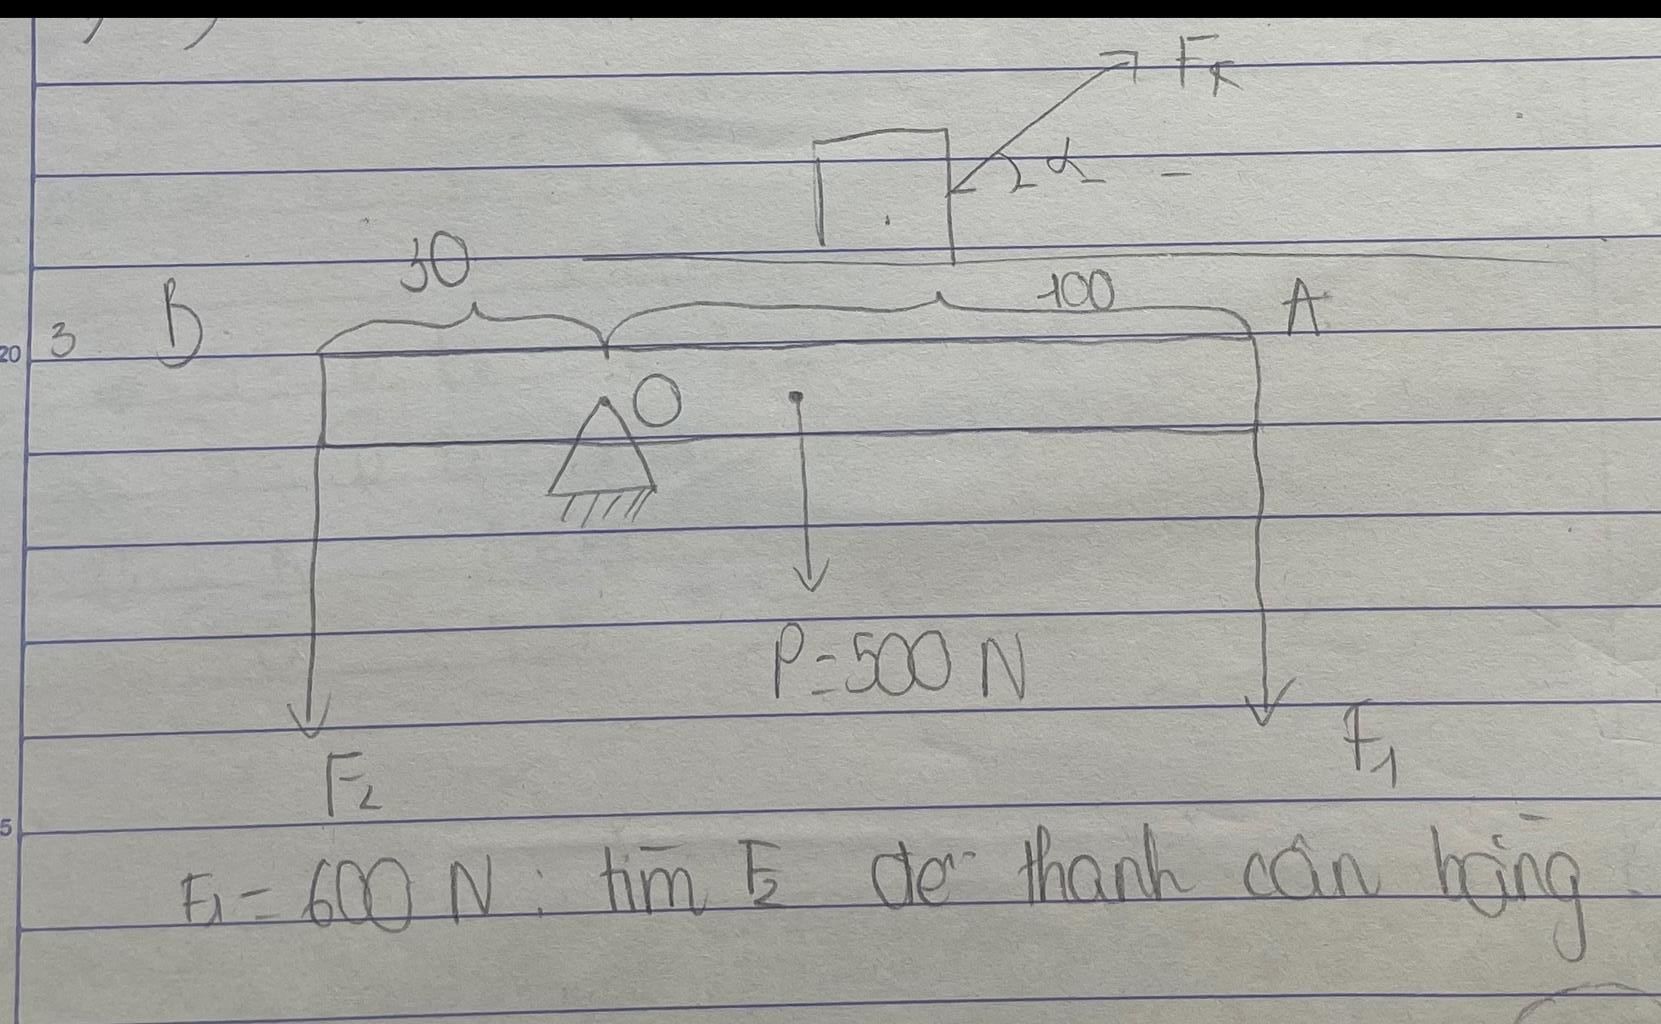 F_K
α
30
100
20
3
B
A
O
P=500 N
F₂
F₁
5
F₁ = 600 N : tìm F₂ để thanh cân bằng